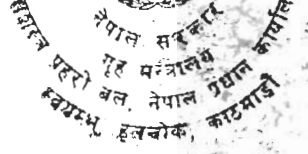 नेपाल सरकार
गृह मन्त्रालय
प्रहरी बल, नेपाल प्रधान
स्वयम्भू, हलचोक, काठमाडौं